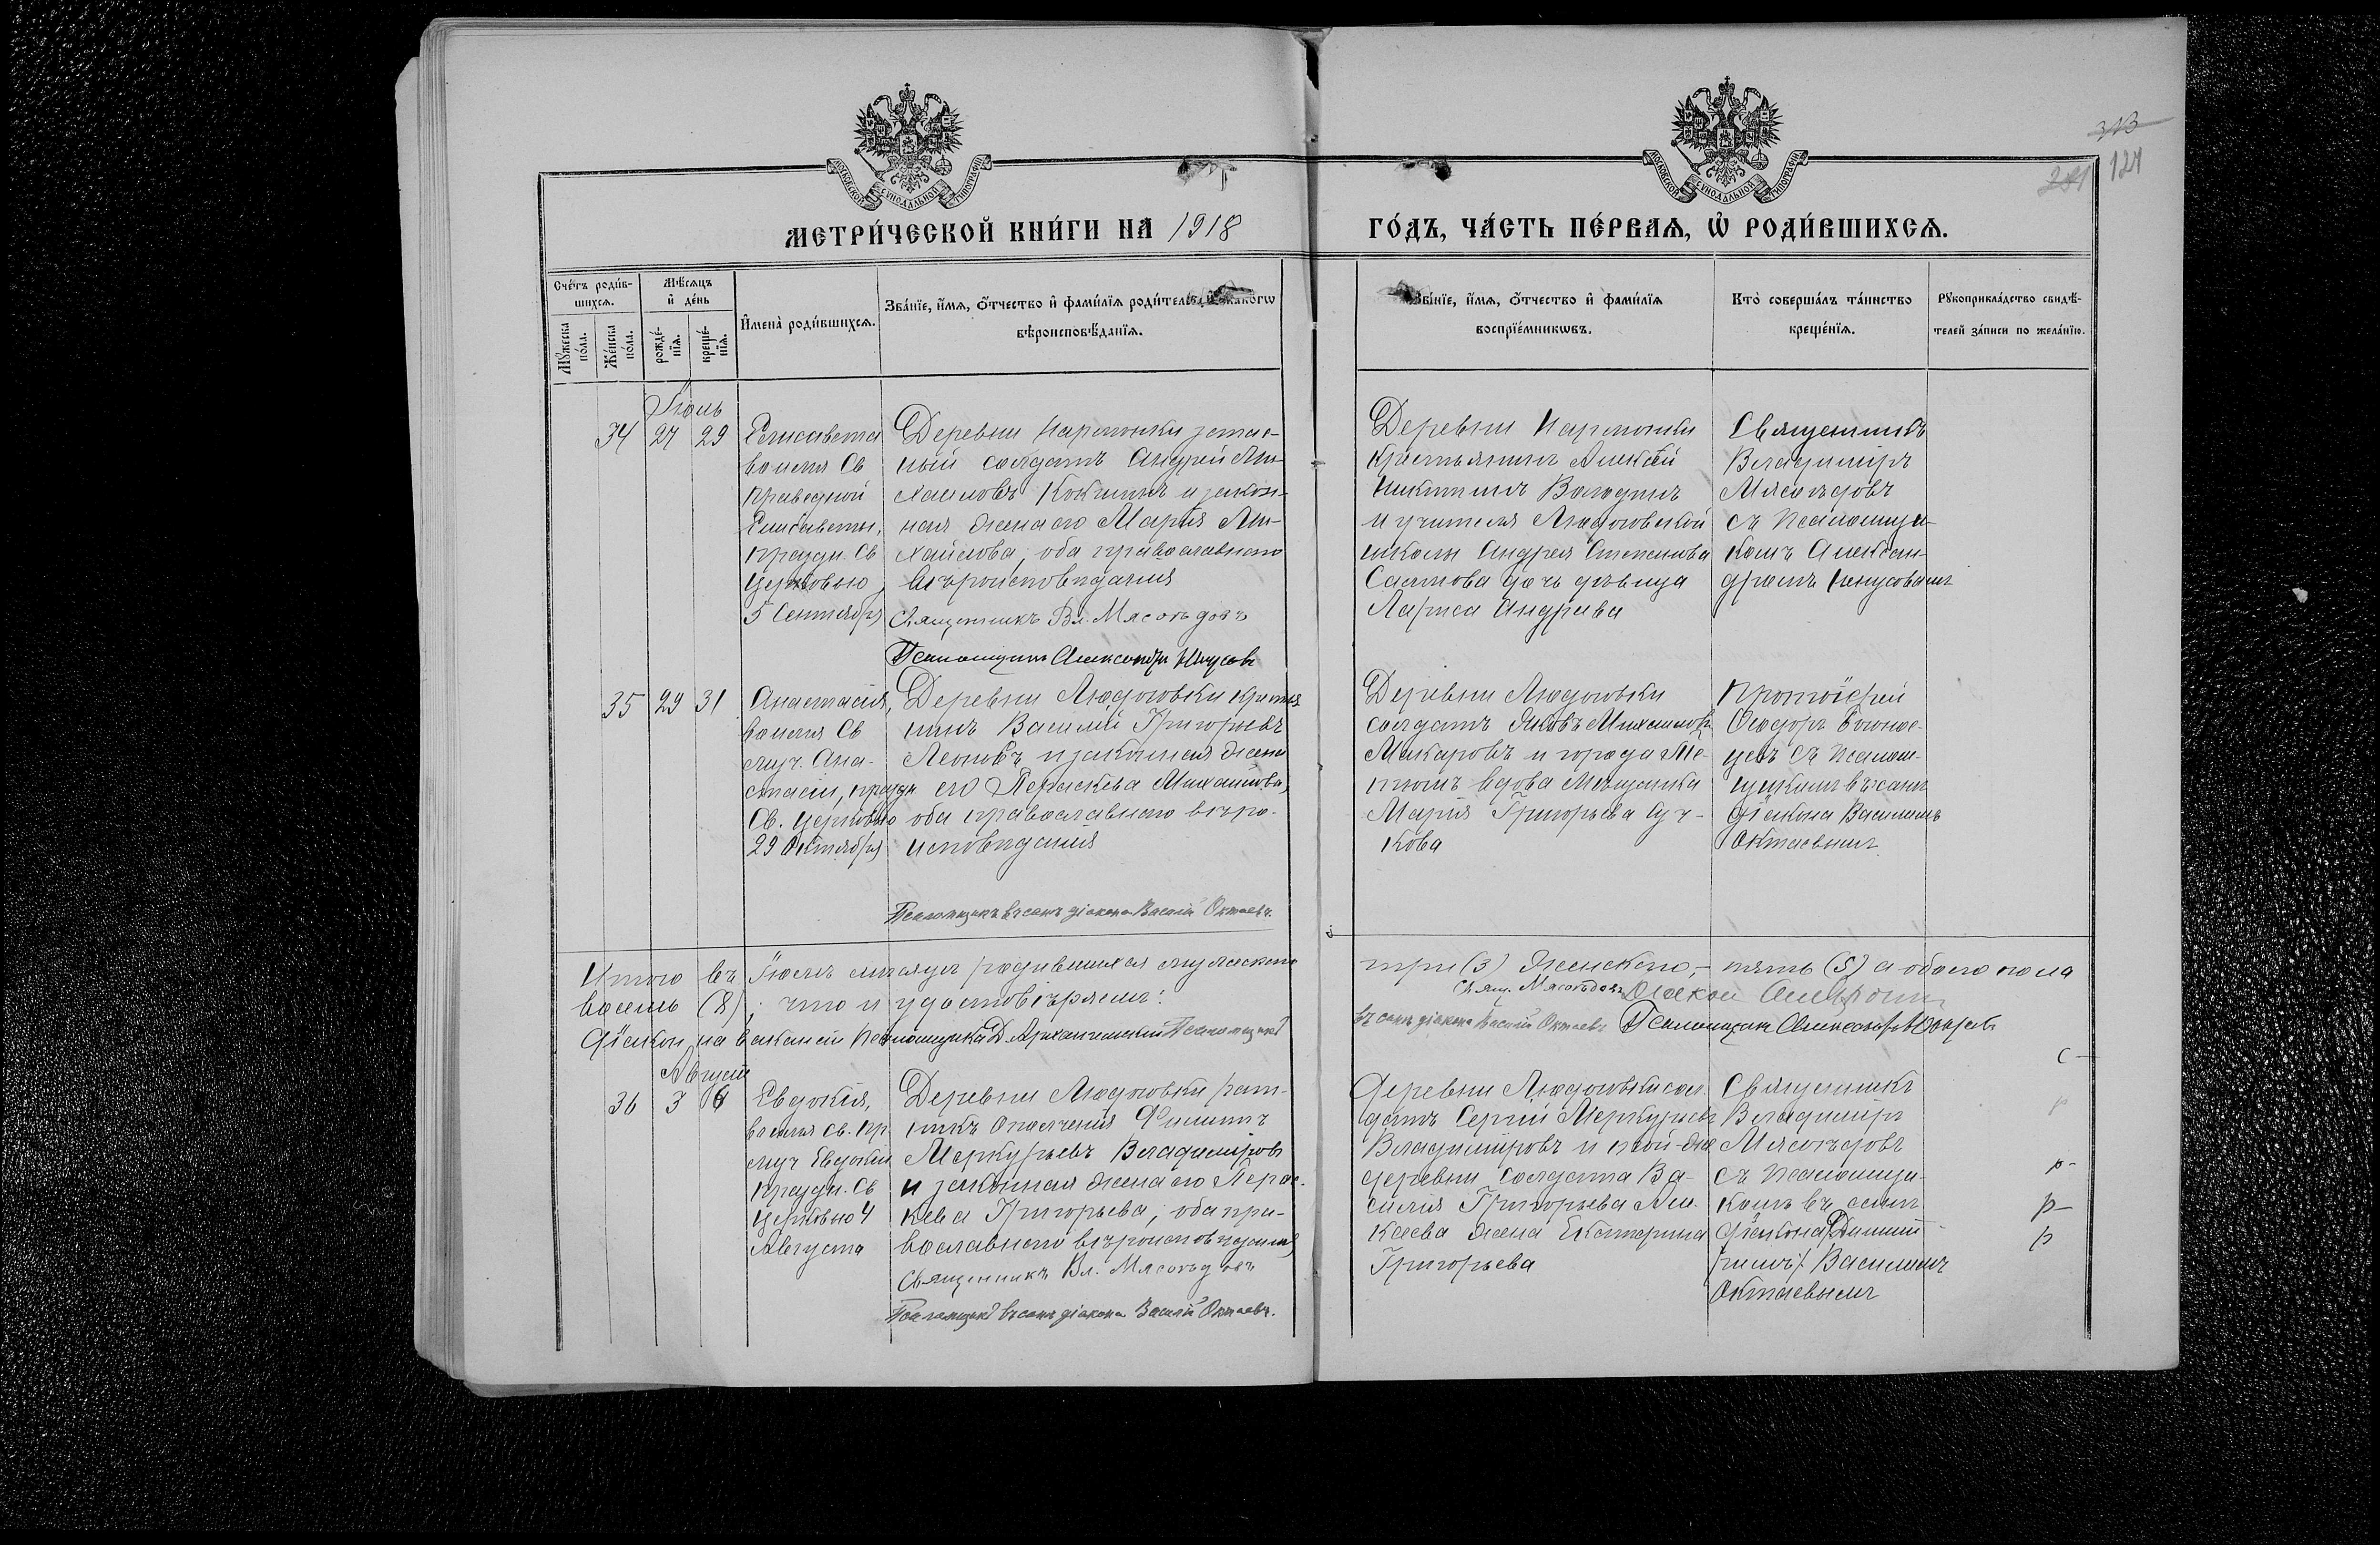 313
281 124
МОСКОВСКОЙ СѴНОДАЛЬНОЙ ТИПОГРАФІИ
МОСКОВСКОЙ СѴНОДАЛЬНОЙ ТИПОГРАФІИ
МЕТРИ́ЧЕСКОЙ КНИ́ГИ НА 1918
ГО́ДЪ, ЧА́СТЬ ПЕ́РВАЯ, Ѡ҆ РОДИ́ВШИХСЯ.
Сче́тъ роди́в-
шихся.
Мꙋ́жеска по́ла.
Же́нска по́ла.
Мѣ́сяцъ
и҆ де́нь
рожде́-
нїя.
креще́-
нїя.
И҆мена̀ роди́вшихся.
Зва́нїе, и҆́мя, ѻ҆́тчество и҆ фами́лїя роди́телей, и҆ какогѡ
вѣроисповѣ́данїя.
Зва́нїе, и҆́мя, ѻ҆́тчество и҆ фами́лїя
воспрїе́мникѡвъ.
Кто̀ соверша́лъ та́инство
креще́нїя.
Рꙋкоприкла́дство свидѣ́-
телей за́писи по жела́нїю.
Іюль
34 27 29
Елисавета
во имя Св
праведной
Елисаветы,
праздн. Св
Церковью
5 Сентября
Деревни
ный солдатъ Андрей Ми-
хаиловъ Кокинъ и закон-
ная жена его Марія Ми-
хайлова, оба православнаго
вѣроисповѣданія
Священникъ Вл. Мясоѣдовъ
Псаломщикъ Александръ
Деревни
крестьянинъ Алексѣй
Никитинъ Володинъ
и учителя Людоговской
школы Андрея Степанова
дочь дѣвица
Лариса Андреева
Священникъ
Владиміръ
Мясоѣдовъ
съ псаломщи-
комъ Алексан-
дромъ
35 29 31
Анастасія,
во имя Св
муч. Ана-
стасіи, праздн
Св. Церковью
29 Октября
Деревни Людоговки крестья
нинъ Василій Григорьевъ
Леоновъ и законная жена
его Параскева Михаилова,
оба православнаго вѣро-
исповѣданія
Псаломщикъ въ санѣ діакона Василій Октаевъ.
Деревни Людоговки
солдатъ Яковъ Михаиловъ
Макаровъ и города
вдова мѣщанка
Марія Григорьева Суч-
кова
Протоіерей
Ѳеодоръ
съ псалом-
щикомъ въ санѣ
діакона Василіемъ
Октаевымъ
Итого въ Іюлѣ мѣсяцѣ родившихся мужескаго
три (3) женскаго, - пять (5) а обоего пола
восемь (8); что и удостовѣряемъ:
Свящ. Мясоѣдовъ
Діаконъ на вакансіи псаломщика Д. Архангельскій Псаломщикъ
въ санѣ діакона Василій Октаевъ Псаломщикъ Александръ
Августъ
36 3
Евдокія,
во имя св. пр.
муч Евдокіи
праздн. Св
Церковью 4
Августа
Деревни Людоговки рат-
никъ ополченія Филиппъ
Меркурьевъ Владиміровъ
и законная жена его Парас-
кева Григорьева, оба пра-
вославнаго вѣроисповѣданія
Священникъ Вл. Мясоѣдовъ
Псаломщикъ въ санѣ діакона Василій Октаевъ.
Деревни Людоговки сол
датъ Сергій Меркурьевъ
Владиміровъ и той-же
деревни солдата Ва-
силія Григорьева Але
ксѣева жена Екатерина
Григорьева
Священникъ
Владиміръ
Мясоѣдовъ
съ псаломщи-
комъ въ санѣ
діакона
Василіемъ
Октаевымъ